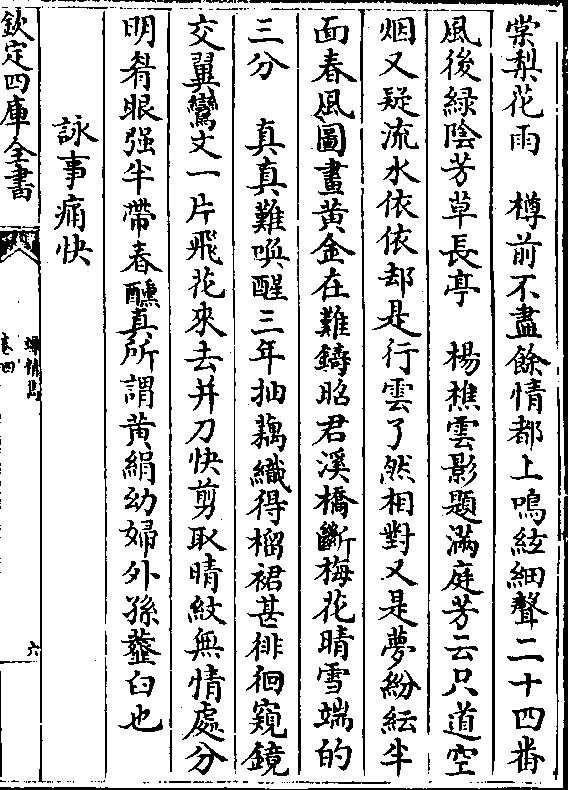 棠梨花雨　樽前不盡餘情都上鳴絃細聲二十四番
風後緑陰芳草長亭　楊樵雲影題滿庭芳云只道空
烟又疑流水依依却是行雲了然相對又是夢紛紜半
面春風圖畫黄金在難鑄昭君溪橋斷梅花晴雪端的
三分　真真難喚醒三年抽藕織得榴裙甚徘徊窺鏡
交翼鸞文一片飛花來去并刀快剪取晴紋無情處分
明脊眼强半帶春醺真所謂黄絹幼婦外孫虀臼也
詠事痛快
欽定四庫全書
卷四
六